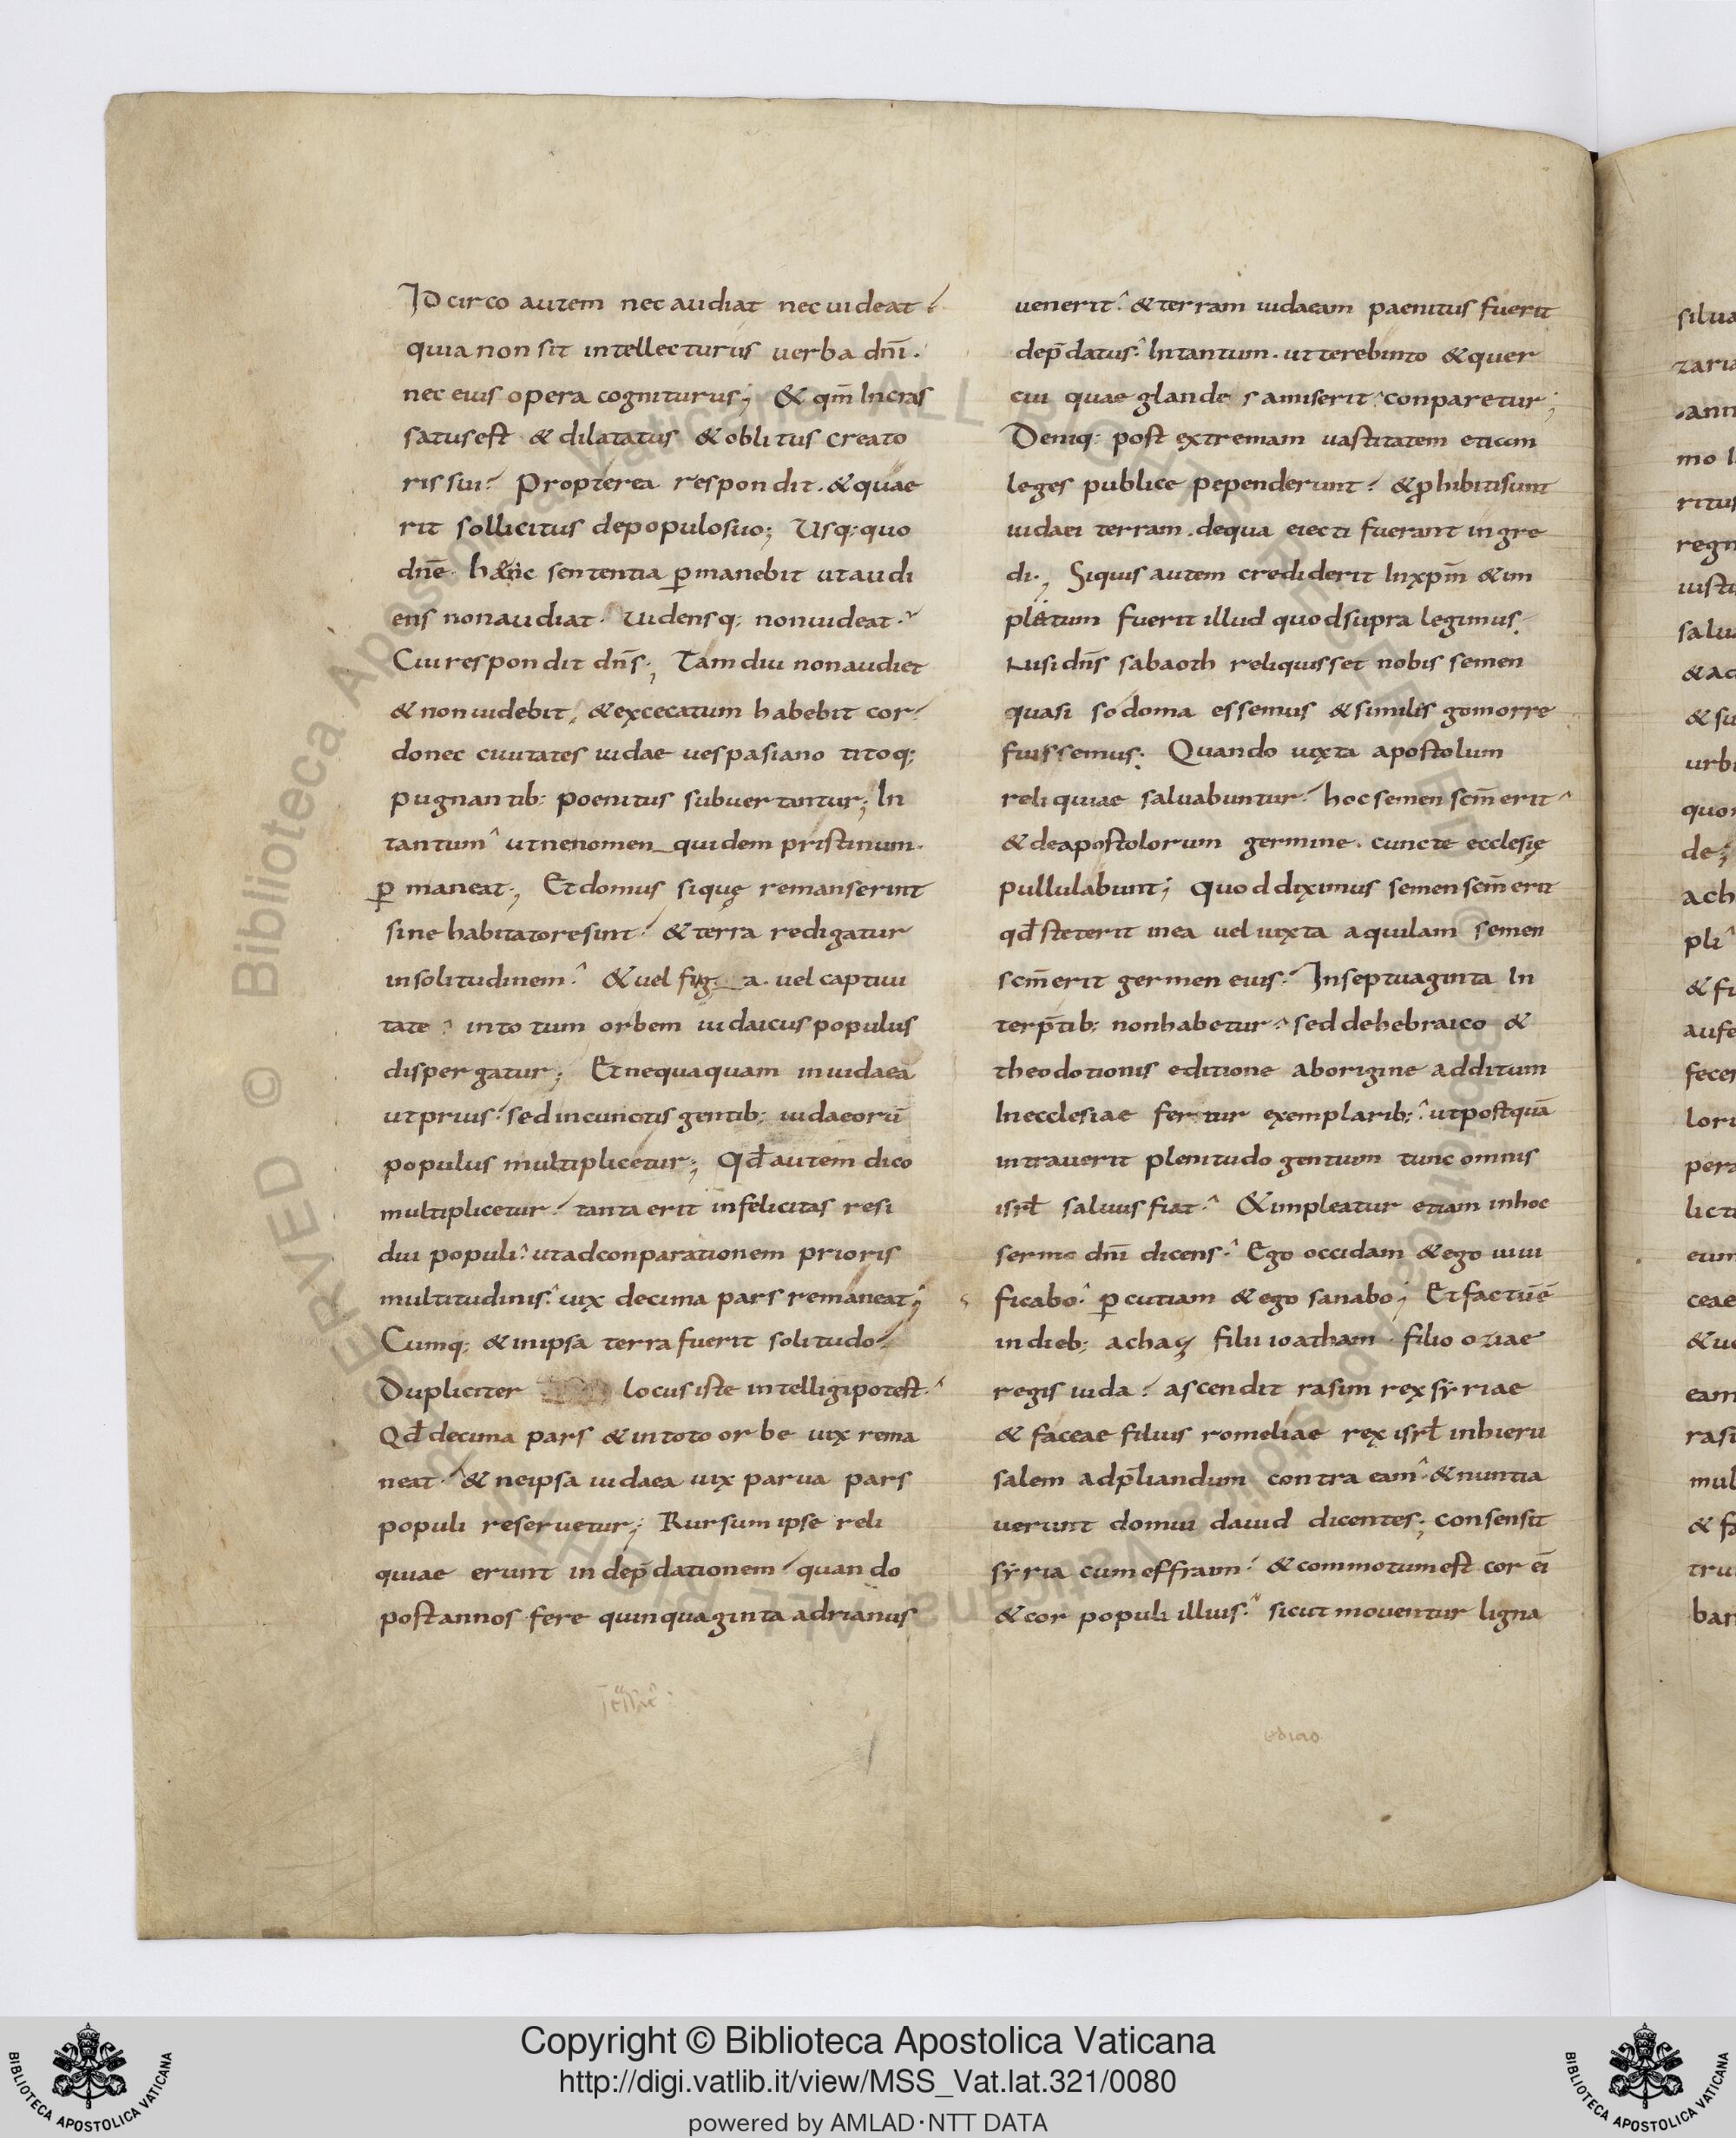 Idcirco autem nec audiat nec uideat
quia non sit intellecturus uerba dnī.
nec eius opera cogniturus; & qm̄ incras
satus est & dilatatus & oblitus creato
ris sui. Propterea respondit. & quae
rit sollicitus de populo suo; Usq; quo
dnē. haenc sententia ꝑmanebit ut audi
ens non audiat. Uidensq; non uideat.
Cui respondit dn̄s; Tam diu non audiet
& non uidebit, & excecatum habebit cor.
donec ciuitates iudae uespasiano titoq;
pugnantib; poenitus subuertantur; In
tantum ut ne nomen quidem pristinum.
ꝑmaneat; Et domus siquę remanserint
sine habitatore sint. & terra redigatur
in solitudinem. & uel fug a. uel captiui
tate in totum orbem iudaicus populus
dispergatur; Et nequaquam in iudaea
ut prius. sed in cunctis gentib; iudaeorū
populus multiplicetur; Qđ autem dico
multiplicetur. tanta erit infelicitas resi
dui populi. ut ad conparationem prioris
multitudinis. uix decima pars remaneat;
Cumq; & in ipsa terra fuerit solitudo.
Dupliciter locus iste intelligi potest.
Qđ decima pars & in toto orbe uix rema
neat. & ne ipsa iudaea uix parua pars
populi reseruetur; Rursum ipse reli
quiae erunt in dep̄dationem quando
post annos fere quinquaginta adrianus
uenerit. & terram iudaeam paenitus fuerit
dep̄datus. In tantum. ut terebinto & quer
cui quae glandes amiserit. conparetur;
Deniq; post extremam uastitatem etiam
leges publice pependerunt. & ꝓhibiti sunt
iudaei terram. de qua eiecti fuerant ingre
di; Siquis autem crediderit in xp̄m & im
pletum fuerit illud quod supra legimus.
Nisi dn̄s sabaoth reliquisset nobis semen
quasi sodoma essemus & similis gomorre
fuissemus. Quando iuxta apostolum
reliquiae saluabuntur. hoc semen scm̄ erit
& de apostolorum germine. cuncte ecclesię
pullulabunt; Quod diximus semen scm̄ erit
qđ steterit in ea uel iuxta aquilam semen
scm̄ erit germen eius. In septuaginta In
terp̄tib; non habetur. sed de hebraico &
theodotionis editione ab origine additum
In ecclesiae fertur exemplarib; ut postquā
intrauerit plenitudo gentium tunc omnis
isrł saluus fiat. & impleatur etiam in hoc
sermo dnī dicens. Ego occidam & ego uiui
ficabo. ꝑcutiam & ego sanabo; Et factū ē
in dieb; achaz filii ioatham. filio oziae
regis iuda. ascendit rasim rex syriae
& faceae filius romeliae rex isrł in hieru
salem ad p̄liandum contra eam. & nuntia
uerunt domui dauid dicentes; consensit
syria cum effraim. & commotum est cor ei
& cor populi illius. sicut mouentur ligna
Copyright © Biblioteca Apostolica Vaticana
http://digi.vatlib.it/view/MSS_Vat.lat.321/0080
powered by AMLAD·NTT DATA
BIBLIOTECA APOSTOLICA VATICANA
BIBLIOTECA APOSTOLICA VATICANA